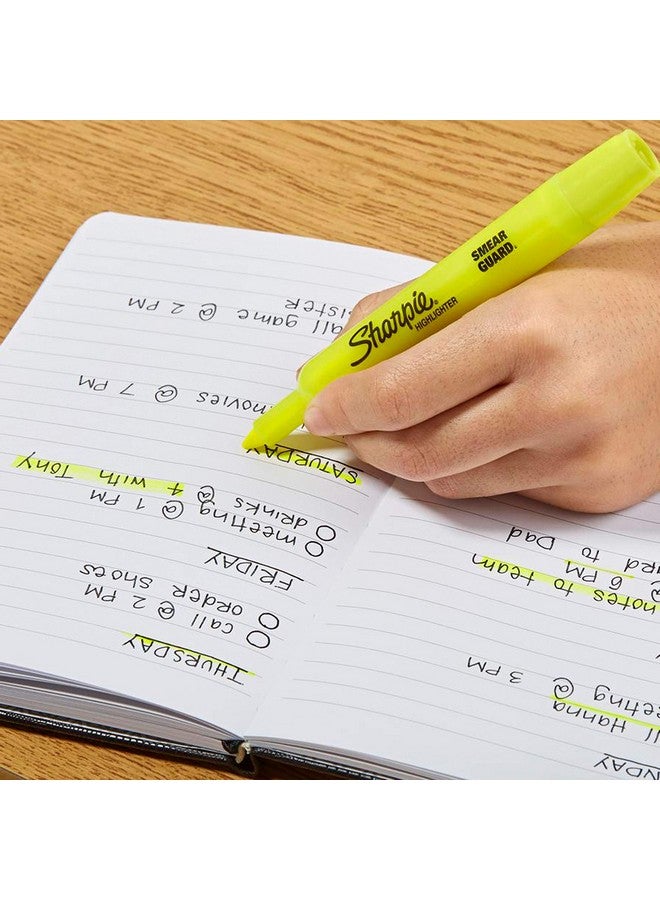 Sharpie®
HIGHLIGHTER
SMEAR
GUARD
NDAY
Hanna
@ 3 PM
notes to team
@ 6 PM
to Dad
THURSDAY
call @ 2 PM
order shoes
FRIDAY
meeting @ 1 PM
drinks @ 4 with Tony
SATURDAY
movies @ 7 PM
game @ 2 PM